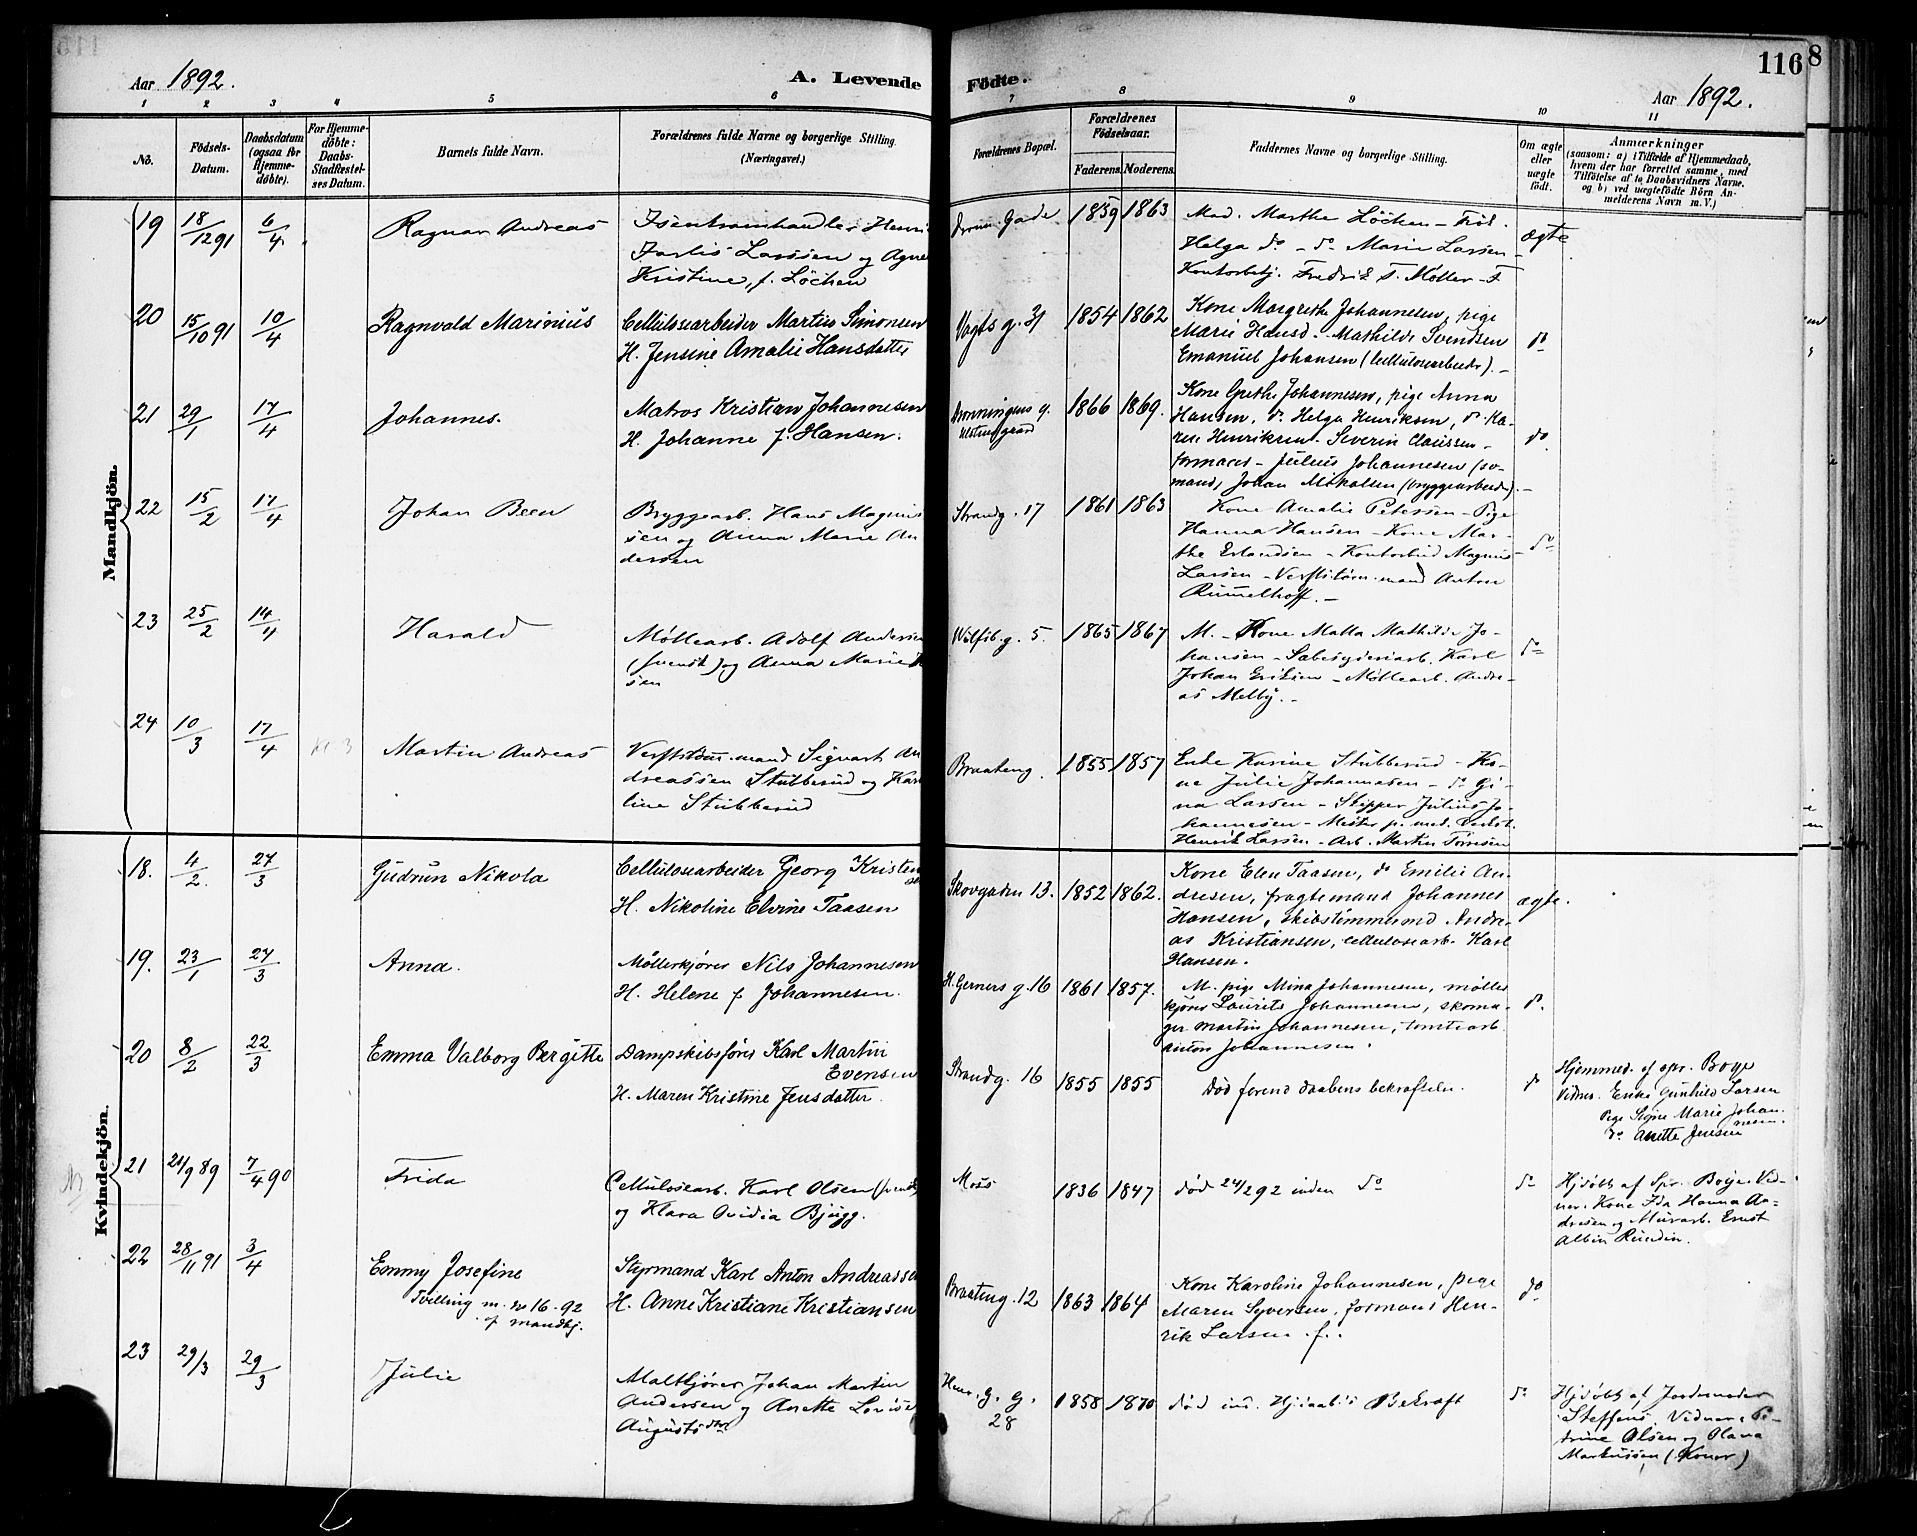 Aar 1892.
A. Levende
Födte.
116
8
Aar 1892.
1 2 3 4 5 6 7 8 9 10 11
No.
Födsels-
Datum.
Daabsdatum
(ogsaa for
Hjemme-
döbte).
For Hjemme-
döbte:
Daabs-
Stadfæstel-
ses Datum.
Barnets fulde Navn.
Forældrenes fulde Navne og borgerlige Stilling
(Næringsvei.)
Forældrenes Bopæl.
Forældrenes
Födselsaar.
Faderens.
Moderens.
Faddernes Navne og borgerlige Stilling.
Om ægte
eller
uægte
födt.
Anmærkninger
(saasom: a) i Tilfælde af Hjemmedaab,
hvem der har forrettet samme, med
Tilföielse af to Daabsvidners Navne.
og b) ved uægtefödte Börn An-
melderens Navn m. V.)
Mandkjön.
19 18/12 91 6/4 Ragnar Andreas
Kristine, f. Løchen
Gade 1859 1863 Mad. Marthe Løchen - Frøk.
Helga do - do Marie Larsen
Kontorbetj. Fredrik T. Møller
ægte
20 15/10 91 10/4 Ragnvald Marinius
Cellulosearbeider Martin Simonsen
H. Jensine Amalie Hansdatter
Vogts g. 31 1854 1862 Kone Margrethe Johannesen, pige
Marie Hansd. Mathilde Svendsen
Emanuel Johansen (Cellulosearbeider). -
do
21 29/1 17/4 Johannes.
Matros Kristian Johannesen
H. Johanne f. Hansen.
Dronningens g. 1866 1869. Kone Grethe Johannesen, pige Anna
Hansen, do Helga Henriksen, do Ka-
ren Henriksen. Severin Claussen
formand - Julius Johannesen (sø-
mand, Johan Mikalsen (bryggearbeider). -
do
22 15/2 17/4 Johan Been
Bryggearb. Hans Magnus
sen og Anna Marie An
dersen
Strandg. 17 1861 1863 Kone Amalie Petersen - Pige
Hanna Hansen - Kone Mar-
the Erlandsen - Kontorbud Magnus
Larsen - Verftstøm.mand Anton
Rummelhoff. -
do
23 25/2 14/4 Harald
Møllearb. Adolf Andersen
(svensk) og Anna Marie
sen
g. 5. 1865 1867 M. - Kone Malla Mathilde Jo-
hansen - Sæbesyderiarb. Karl
Johan Eriksen - Møllearb. Andre-
as Melby. -
do
24 10/3 17/4 Martin Andreas
Verftstøm.mand Sigvart An
dreassen Stubberud og Karo
line Stubberud
Braateng. 1855 1857 Enke Karine Stubberud - Ko-
ne Julie Johannesen - do Gi-
na Larsen - Skipper Julius Jo-
hannesen - Mester p. mek. Verkst.
Henrik Larsen - Arb. Martin Tørresen
Kvindekjön.
18. 4/2. 27/3 Gudrun Nikola
Cellulosearbeider Georg Kristen
sen
H. Nikoline Elvine Taasen
Skovgaden 13. 1852 1862. Kone Elen Taasen, do Emilie An-
dresen, fragtemand Johannes
Hansen, skibstømmermd Andre-
as Kristiansen, cellulosearb. Karl
Hansen.
ægte.
19. 23/1 27/3 Anna.
Møllerkjører Nils Johannesen
H. Helene f Johannesen.
H. Gerners g. 16 1861 1857. M. pige Mina Johannesen, møller
kjører Laurits Johannesen, skoma-
ger Martin Johannesen, tomtearb.
Anton Johannesen.
do.
20 8/2 22/3 Emma Valborg Bergitte
Dampskibsfører Karl Martin
Evensen
H. Maren Kristine Jensdatter.
Strandg. 16 1855 1855 Død forend daabens bekræftelse.
do
Hjemmed. af spr. Boye
Vidner. Enke Gunhild Larsen
Pige Signe Marie Johan-
nesen.
do Anette Jensen
21 21/9 89 7/4 90 Frida
Cellulosearb. Karl Olsen (svensk)
og Klara Ovidia Bjugg.
Moss 1836 1847 død 24/2 92 inden do
do
Hjdøbt af Spr. Boye. Vid-
ner. Kone Ida Hanna An-
dresen og Murarb. Ernst
Albin Rundin.
22 28/11 91 3/4 Emmy Josefine
Tvilling m. no 16 - 92
af mandkj.
Styrmand Karl Anton Andreassen
H. Anne Kristiane Kristiansen
Braateng. 12 1863 1864 Kone Karoline Johannesen, pige
Maren Syversen, formand Hen-
rik Larsen. f..
do
23 29/3 29/3 Julie
Maltkjører Johan Martin
Andersen og Anette Lovise
Augustsdtr
g. g. 28 1858 1870 død ind. Hjdaab's Bekræft
do
Hjdøbt af Jordemoder
Steffens. Vidner: Pe-
trine Olsen og Olava
Markussen (Koner)